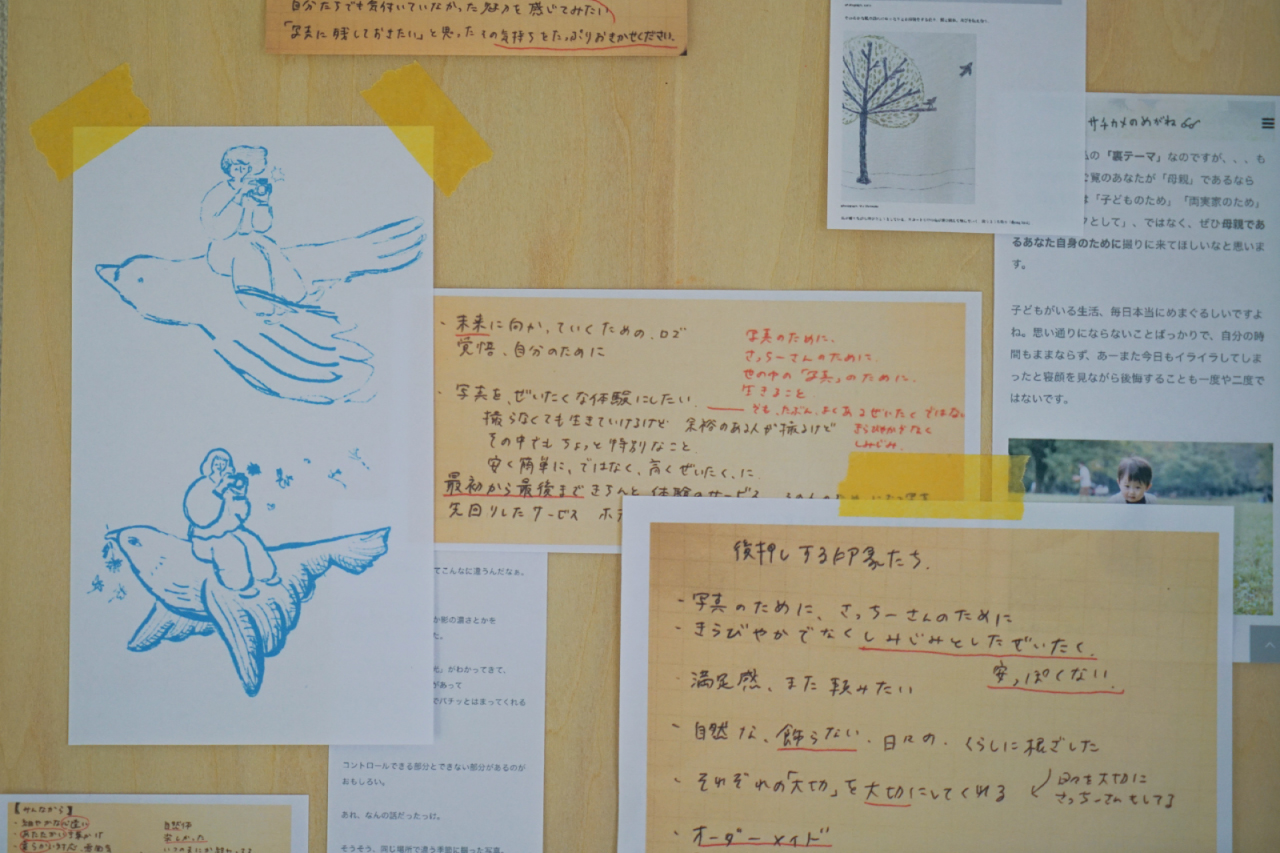 自分たちでも気付いていなかった魅力を感じてみたい
「写真に残しておきたい」と思ったその気持ちをたっぷりおきかせください。
サチカメのめがね
「裏テーマ」なのですが、、、も
覧のあなたが「母親」であるなら
は「子どものため」「両実家のため」
として」、ではなく、ぜひ母親であ
るあなた自身のために撮りに来てほしいなと思いま
す。
子どもがいる生活、毎日本当にめまぐるしいですよ
ね。思い通りにならないことばっかりで、自分の時
間もままならず、あーまた今日もイライラしてしま
ったと寝顔を見ながら後悔することも一度や二度で
はないです。
・未来に向かっていくための、ロゴ
覚悟、自分のために
写真のために、
さっちーさんのために、
世の中の「写真」のために、
生きること
・写真を、ぜいたくな体験にしたい
でも、たぶん、よくあるぜいたくではない
撮らなくても生きていけるけど 余裕のある人が撮るけど
きらびやかでなく
しみじみ
その中でも ちょっと特別なこと
安く簡単に、ではなく、高くぜいたく、に
最初から最後まで きちんと 体験のサービス
先回りしたサービス
後押しする印象たち。
・写真のために、さっちーさんのために
・きらびやかでなく しみじみとしたぜいたく。
安っぽくない。
満足感、また頼みたい
・自然な、飾らない、日々の、くらしに根ざした
・それぞれの「大切」を大切にしてくれる
日々を大切に
さっちーさんもしてる
・オーダーメイド
てこんなに違うんだなぁ。
か影の濃さとかを
た。
」がわかってきて、
があって
でパチッとはまってくれる
コントロールできる部分とできない部分があるのが
おもしろい。
あれ、なんの話だったっけ。
そうそう、同じ場所で違う季節に撮った写真。
【みんなから】
・細やかな心遣い
自然体
・あたたかい
楽しかった